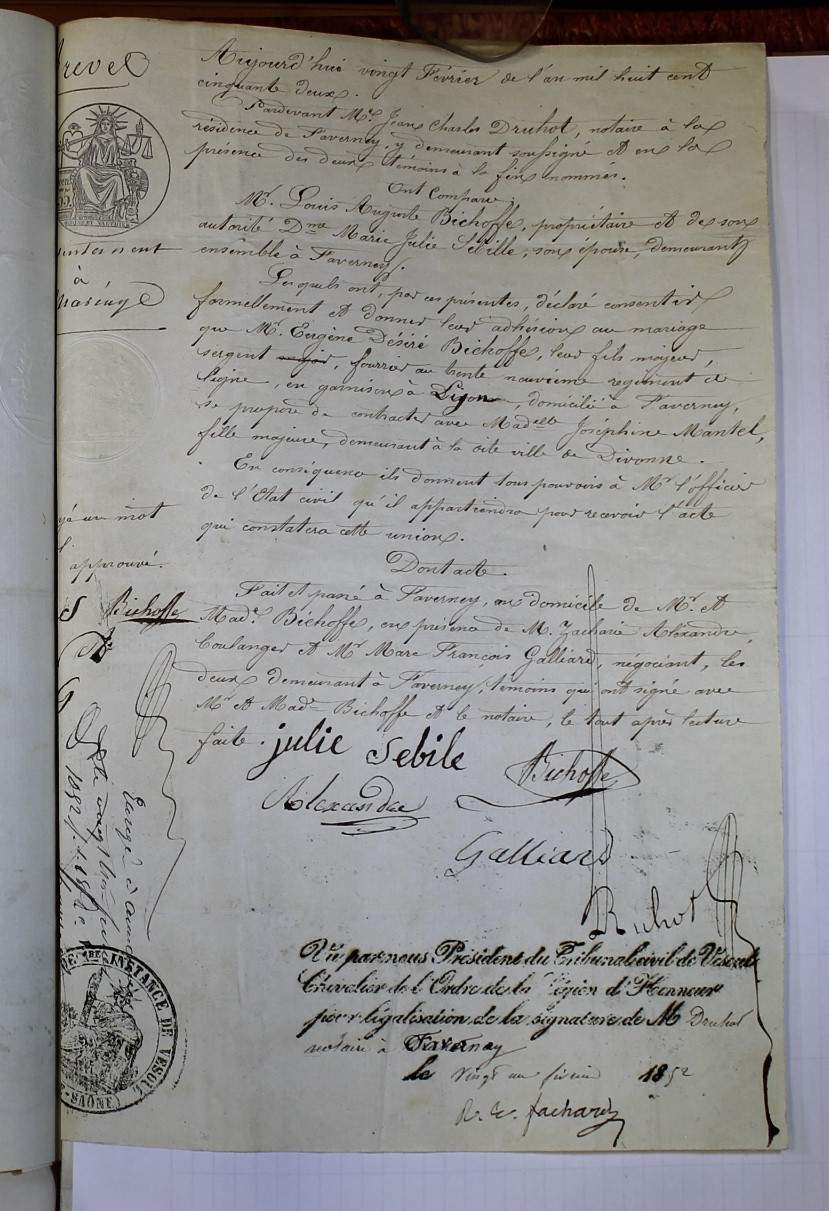 Brevet
Aujourd'hui vingt Février de l'an mil huit cent
cinquante deux.
Pardevant Me Jean Charles Druhot, notaire à la
résidence de Faverney, y demeurant soussigné et en la
présence des deux témoins à la fin nommés.
Ont Comparu.
Mr. Louis Auguste Bichoffe, propriétaire et de son
autorité Dme Marie Julie Sebille, son épouse, demeurant
ensemble à Faverney.
à
Mariage
Lesquels ont, par ces présentes, déclaré consentir
formellement et donner leur adhésion au mariage
que Mr. Eugène Désiré Bichoffe, leur fils majeur,
sergent fourrier au trente neuvième régiment de
ligne, en garnison à Lyon, domicilié à Faverney,
se propose de contracter avec Madelle Joséphine Mantel,
fille majeure, demeurant à la dite ville de Divonne.
En conséquence ils donnent tous pouvoirs à Mr l'officier
de l'Etat civil qu'il appartiendra pour recevoir l'acte
qui constatera cette union.
yé un mot
approuvé.
Dont acte.
Fait et passé à Faverney, au domicile de Mr. et
Made Bichoffe, en présence de M. Zacharie Alexandre,
boulanger et Mr Marc François Galliard, négociant, les
deux demeurant à Faverney, témoins qui ont signé avec
Mr et Made Bichoffe et le notaire, le tout après lecture
faite.
JS Bichoffe
julie Sebile
Bichoffe
Alexandre
Galliard
Druhot
Vu par nous Président du Tribunal civil de Vesoul
Chevalier de l'Ordre de la Légion d'Honneur
pour légalisation de la signature de M Druhot
notaire à Faverney
le vingt un février 1852
INSTANCE DE VESOUL
SAÔNE)